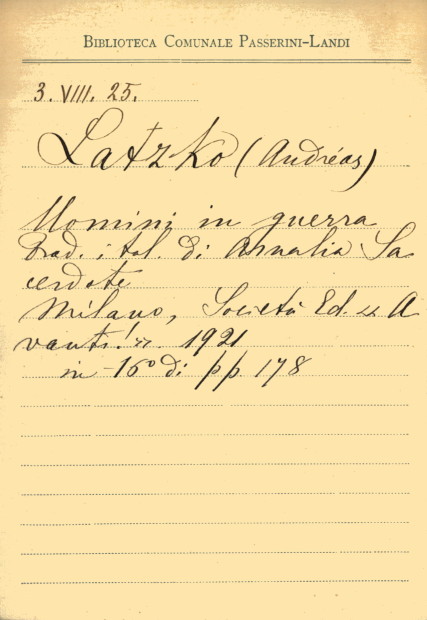 BIBLIOTECA COMUNALE PASSERINI-LANDI
3. VIII. 25.
Latzko (Andréas)
Uomini in guerra
trad. ital. di Annalia Sa
cerdote
Milano, Società Ed. « A
vanti! ». 1921
in 16° di pp. 178